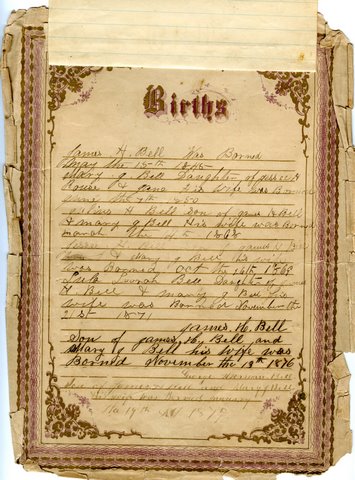 Births
James H. Bell Was Borned
May the 18th 18
Mary J Bell Daughter of Jesse H
House & Jane his Wife was Borned
June the 7th 1850
H Bell Son of James H Bell
& Mary J Bell His Wife was Borned
March the 4th 1868
Jesse H James H Bell
& Mary J Bell his wife
was Borned Oct the 16th 1869
Lula Bell Daughter of James
H Bell & Mary J Bell his
wife was Borned November the
21st 1871
James, H, Bell
Son of James, H, Bell, and
Mary J Bell his Wife was
Borned November the 13th 1876
George Bell
Son of James and Mary J Bell
his wife was Borned
the 19th 1873